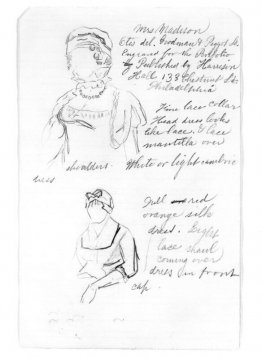 Mrs Madison
Otis del. Goodman & Piggot Sc.
Engraved for the Portfolio
by Published by Harrison
Hall, 133 Chestnut St.
Philadelphia
Fine lace collar
Head dress looks
like lace. Lace
mantilla over
shoulders. White or light cambric
dress
Full red
orange silk
dress. Light
lace shawl
coming over
dress in front
cap.